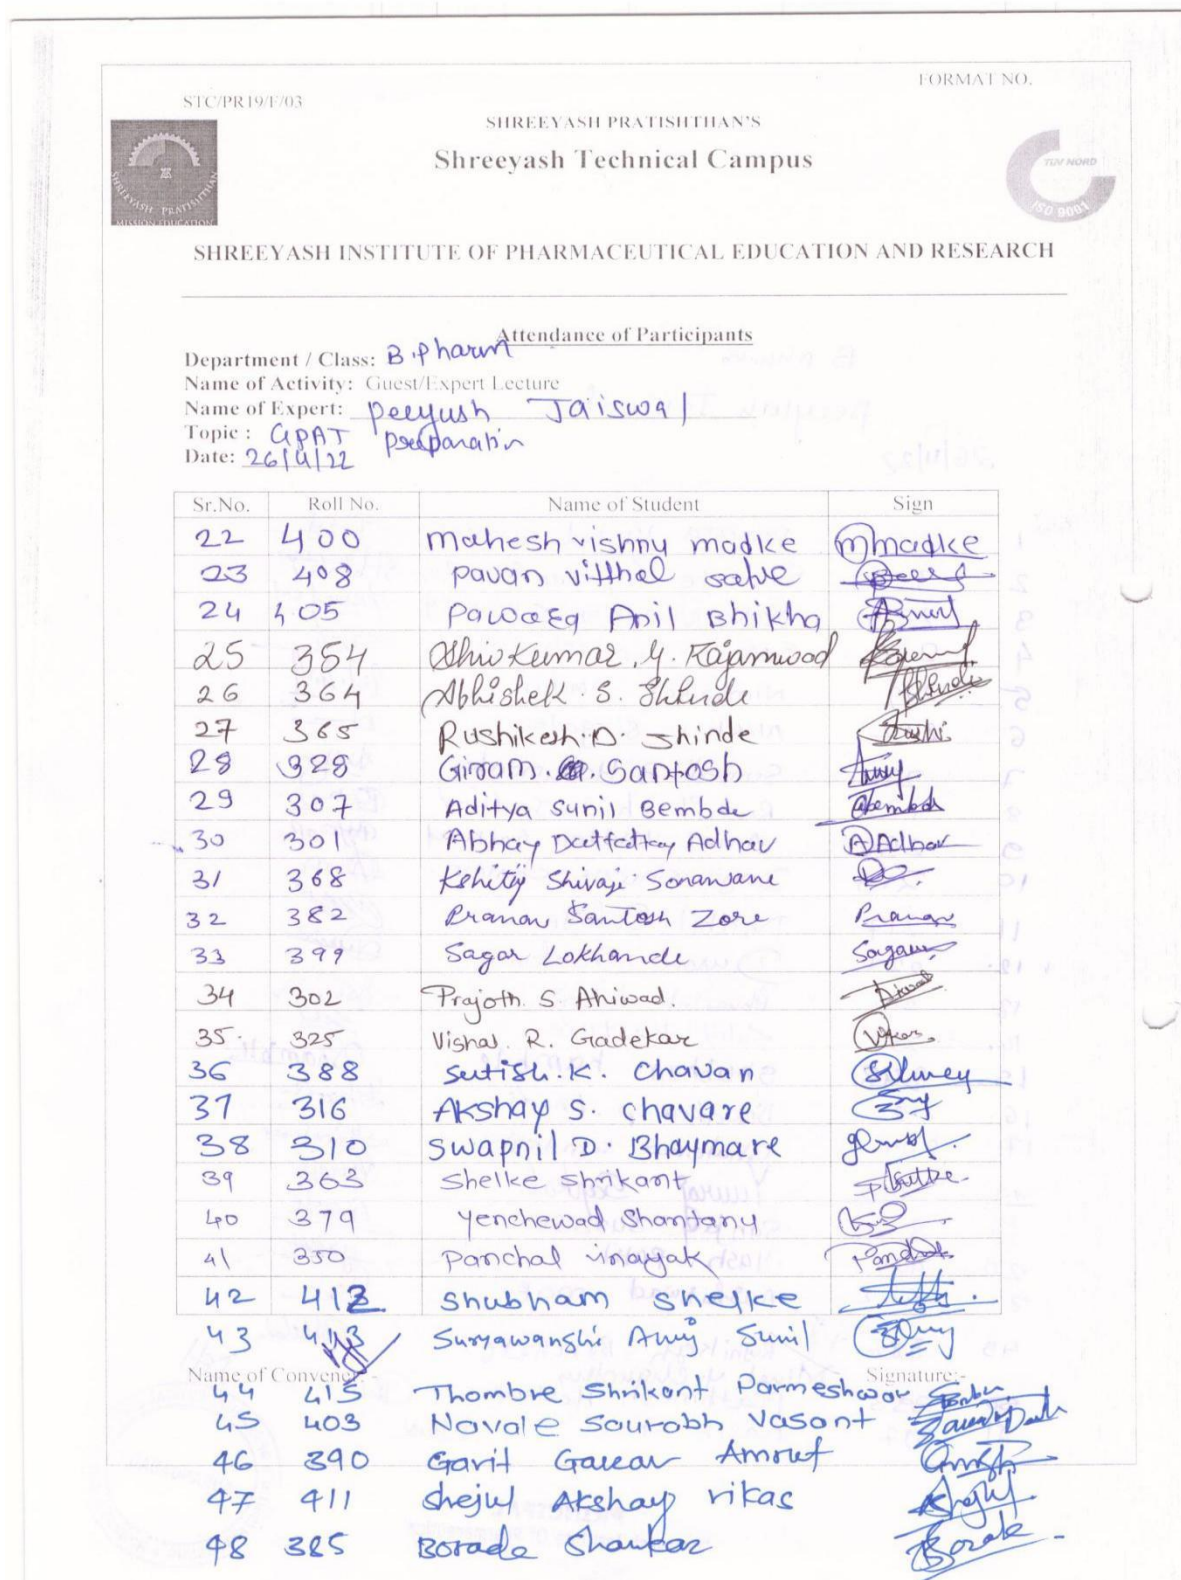 FORMAT NO.
STC/PR19/F/03
SHREEYASH PRATISHTHAN'S
Shreeyash Technical Campus
TUV NORD
ISO 9001
SHREEYASH PRATISHTHAN
MISSION EDUCATION
SHREEYASH INSTITUTE OF PHARMACEUTICAL EDUCATION AND RESEARCH
Attendance of Participants
Department / Class: B.Pharm
Name of Activity: Guest/Expert Lecture
Name of Expert: Peeyush Jaiswal
Topic : GPAT preparatin
Date: 26/4/22
Sr.No. Roll No. Name of Student Sign
22 400 Mahesh vishnu madke mmadke
23 408 pavan vitthal salve
24 405 Anil Bhikha
25 354 Shivkumar. Y. Rajamwod
26 364 Abhishek. S. Shinde Shinde
27 365 Rushikesh.D. Shinde Rushi
28 328 Giram. Santosh
29 307 Aditya Sunil Bembde Bembde
30 301 Abhay Adhav AAdhav
31 368 Kshitij Shivaji Sonawane
32 382 Pranav Santosh Zore Pranav
33 399 Sagar Lokhande Sagar
34 302 Prajoth. S. Ahiwad.
35. 325 Vishal. R. Gadekar
36 388 Satish.K. Chavan
37 316 Akshay S. Chavare
38 310 Swapnil D. Bhaymare
39 363 Shelke Shrikant
40 379 Yenchewad Shantanu
41 350 Panchal vinayak Panchal
42 412 Shubham Shelke
43 413 Suryawanshi Anuj Sunil
Name of Convener:- Signature:-
44 415 Thombre Shrikant Parmeshwar
45 403 Navale Saurabh Vasant
46 390 Gavit Gaurav Amrut
47 411 Shejul Akshay vikas Shejul
48 385 Borade Shankar Borade